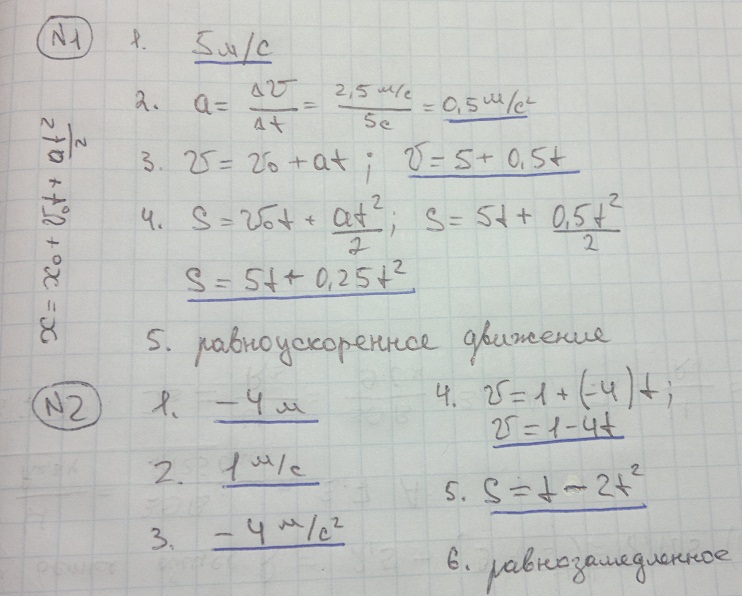 N1
1. 5 м/с
2. a = Δv/Δt = 2,5 м/с / 5с = 0,5 м/с²
3. v = v₀ + at; v = 5 + 0,5t
4. S = v₀t + at²/2; S = 5t + 0,5t²/2
S = 5t + 0,25t²
5. равноускоренное движение
x = x₀ + v₀t + at²/2
N2
1. -4 м
2. 1 м/с
3. -4 м/с²
4. v = 1 + (-4)t;
v = 1 - 4t
5. S = t - 2t²
6. равнозамедленное